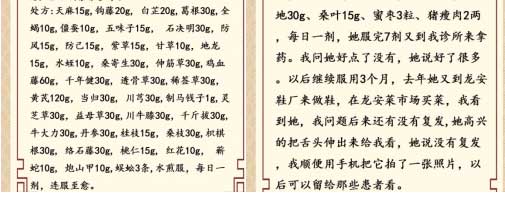 处方:天麻15g,钩藤20g, 白芷20g,葛根30g,全
蝎10g,僵蚕10g, 五味子15g, 石决明30g, 防
风15g, 防己15g, 紫草15g, 甘草10g, 地龙
15g, 水蛭10g, 桑寄生30g, 伸筋草30g,鸡血
藤60g, 千年健30g, 透骨草30g,稀荟草30g,
黄芪120g, 当归30g, 川芎30g,制马钱子1g,灵
芝草30g, 益母草30g,川牛膝30g, 千斤拔30g,
牛大力30g,丹参30g,桂枝15g, 桑枝30g,枳椇
根30g, 络石藤30g, 桃仁15g, 红花10g, 蕲
蛇10g, 炮山甲10g,蜈蚣3条,水煎服, 每日一
剂, 连服至愈。
地30g、桑叶15g、蜜枣3粒、猪瘦肉2两
，每日一剂，她服完7剂又到我诊所来拿
药。我问她好点了没有，她说好了很多
。以后继续服用3个月，去年她又到龙安
鞋厂来做鞋，在龙安菜市场买菜，我看
到她，我问题后来还有没有复发,她高兴
的把舌头伸出来给我看，她说没有复发
，我顺便用手机把它拍了一张照片，以
后可以留给那些患者看。